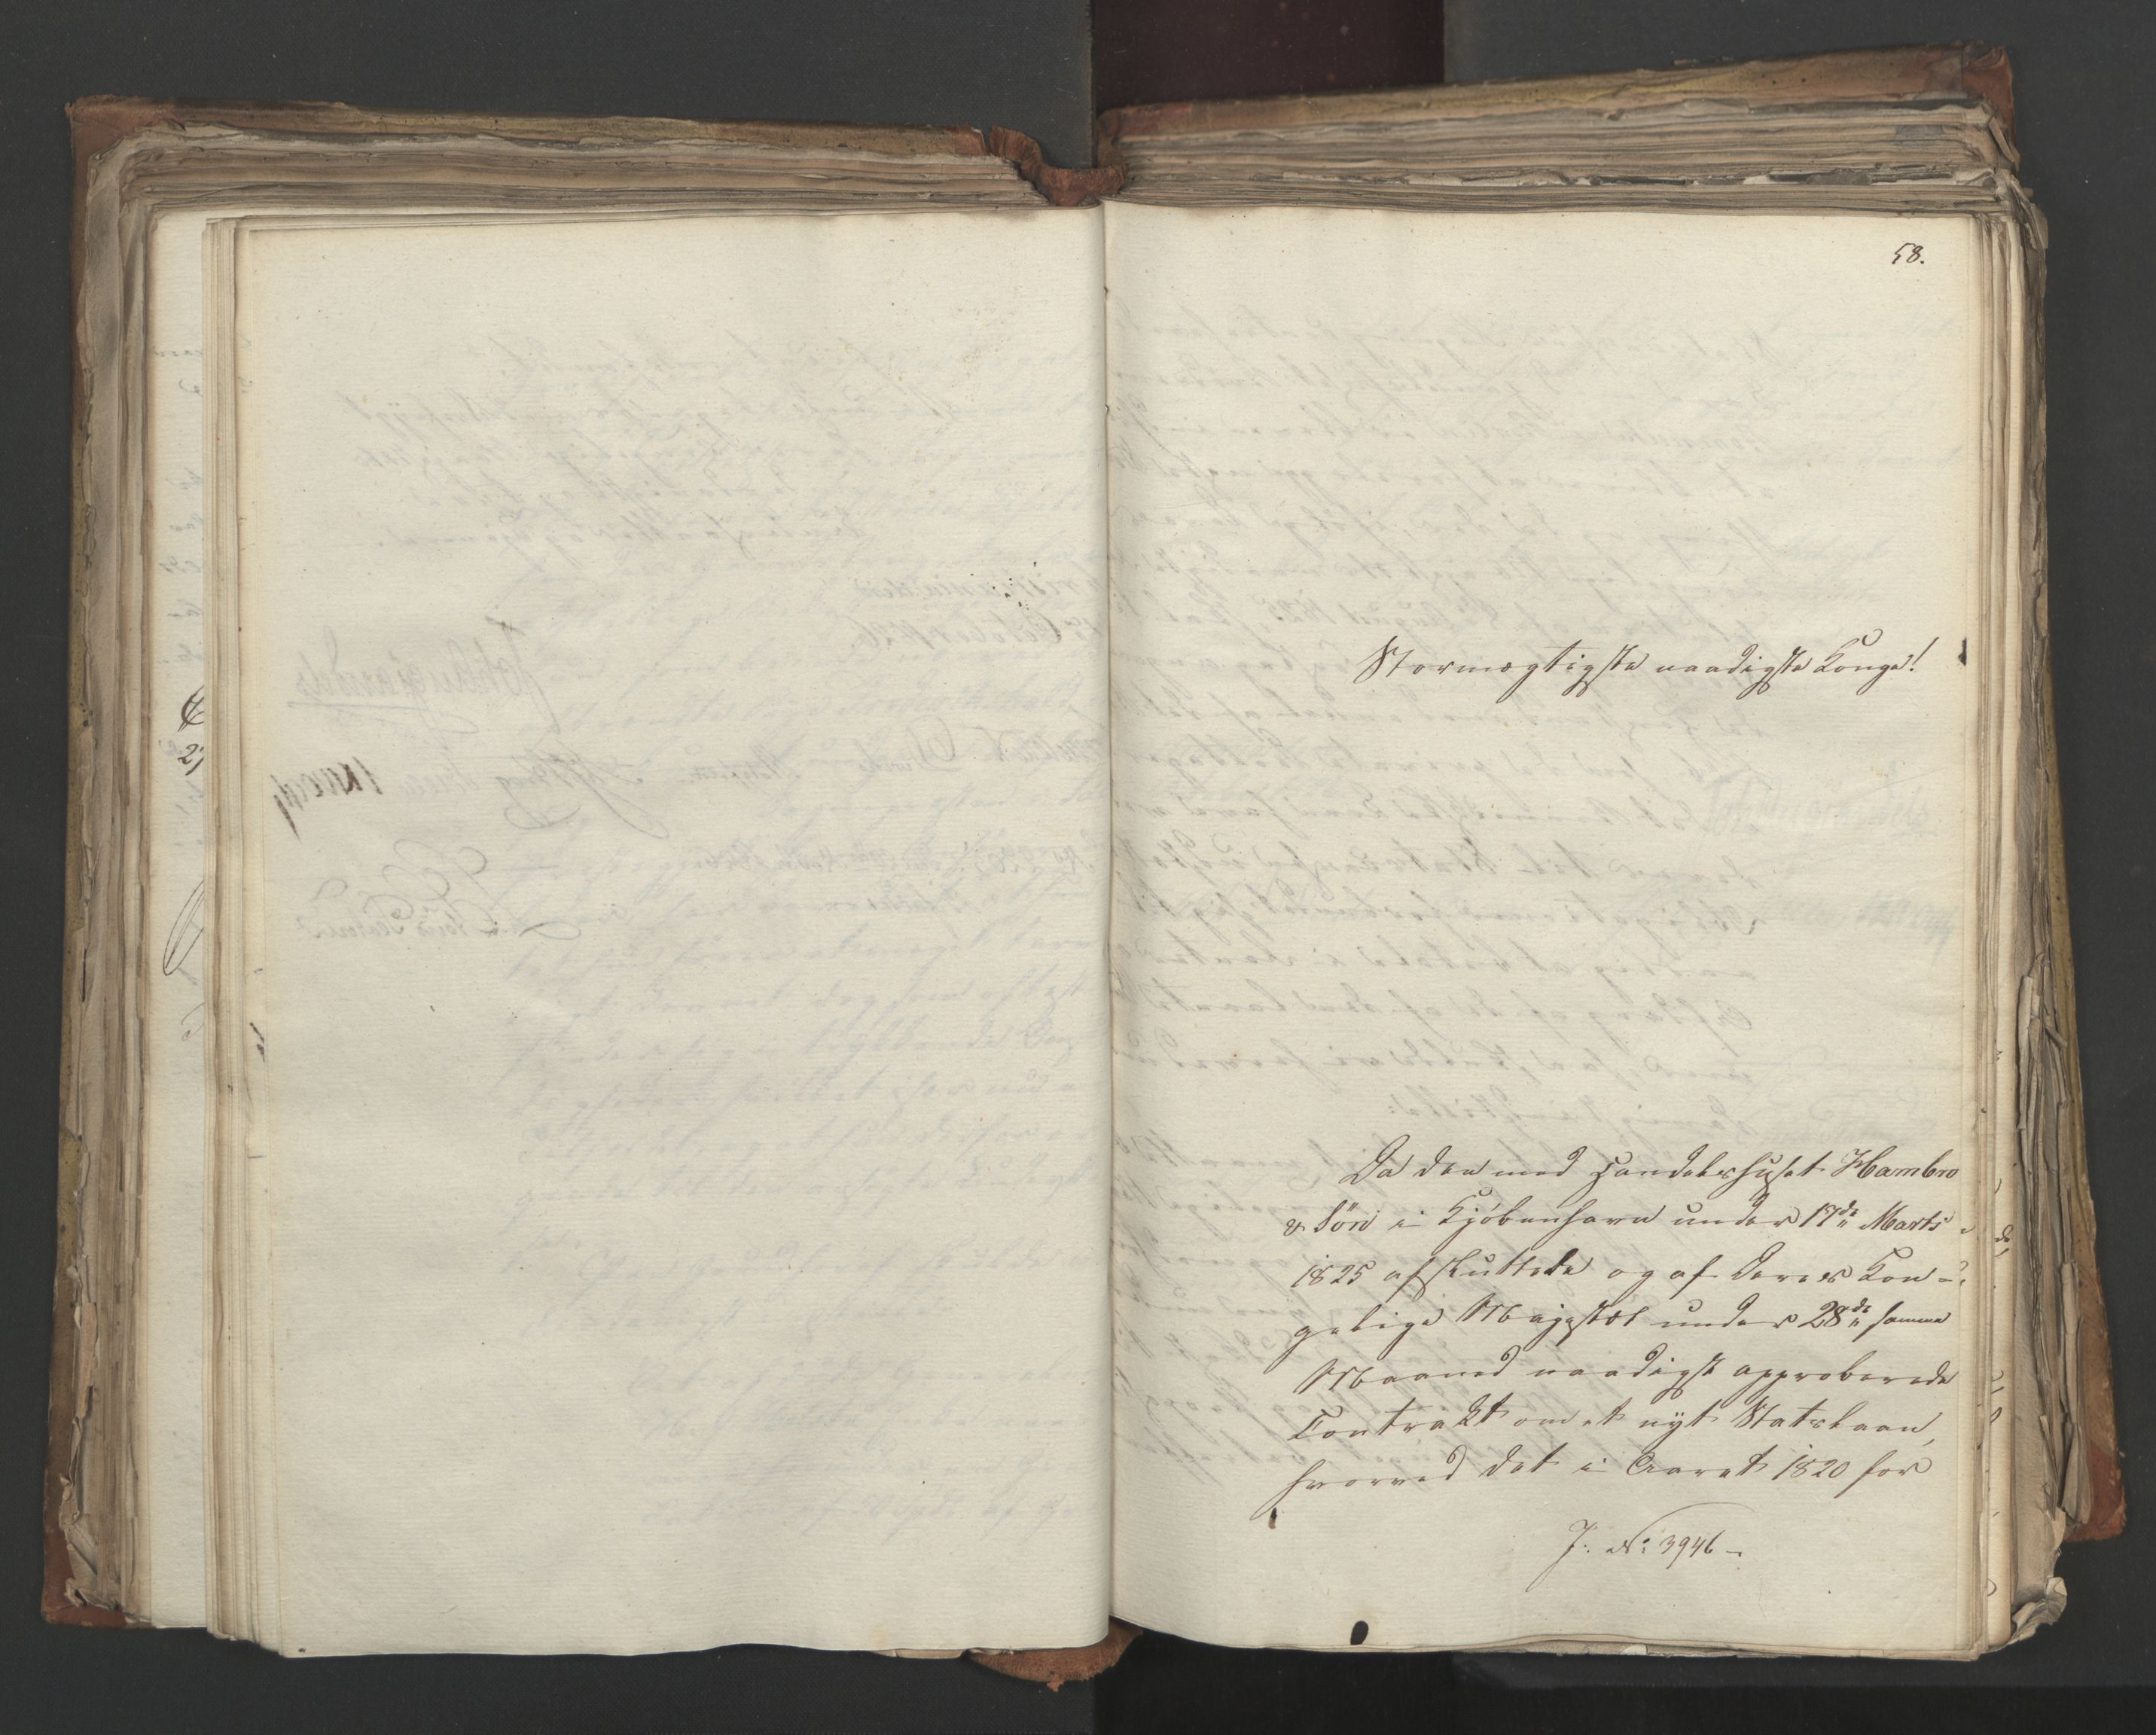 58.
Stormægtigste naadigste Konge!
Da den med Handelshuset Hambro
& Søn i Kjøbenhavn under 17de Marts
1825 afsluttede og af Deres Kon-
gelige Majestæt under 28de samme
Maaned naadigst approberede
Contrakt om et nyt Statslaan,
hvorved det i Aaret 1820 for
J: No: 3946